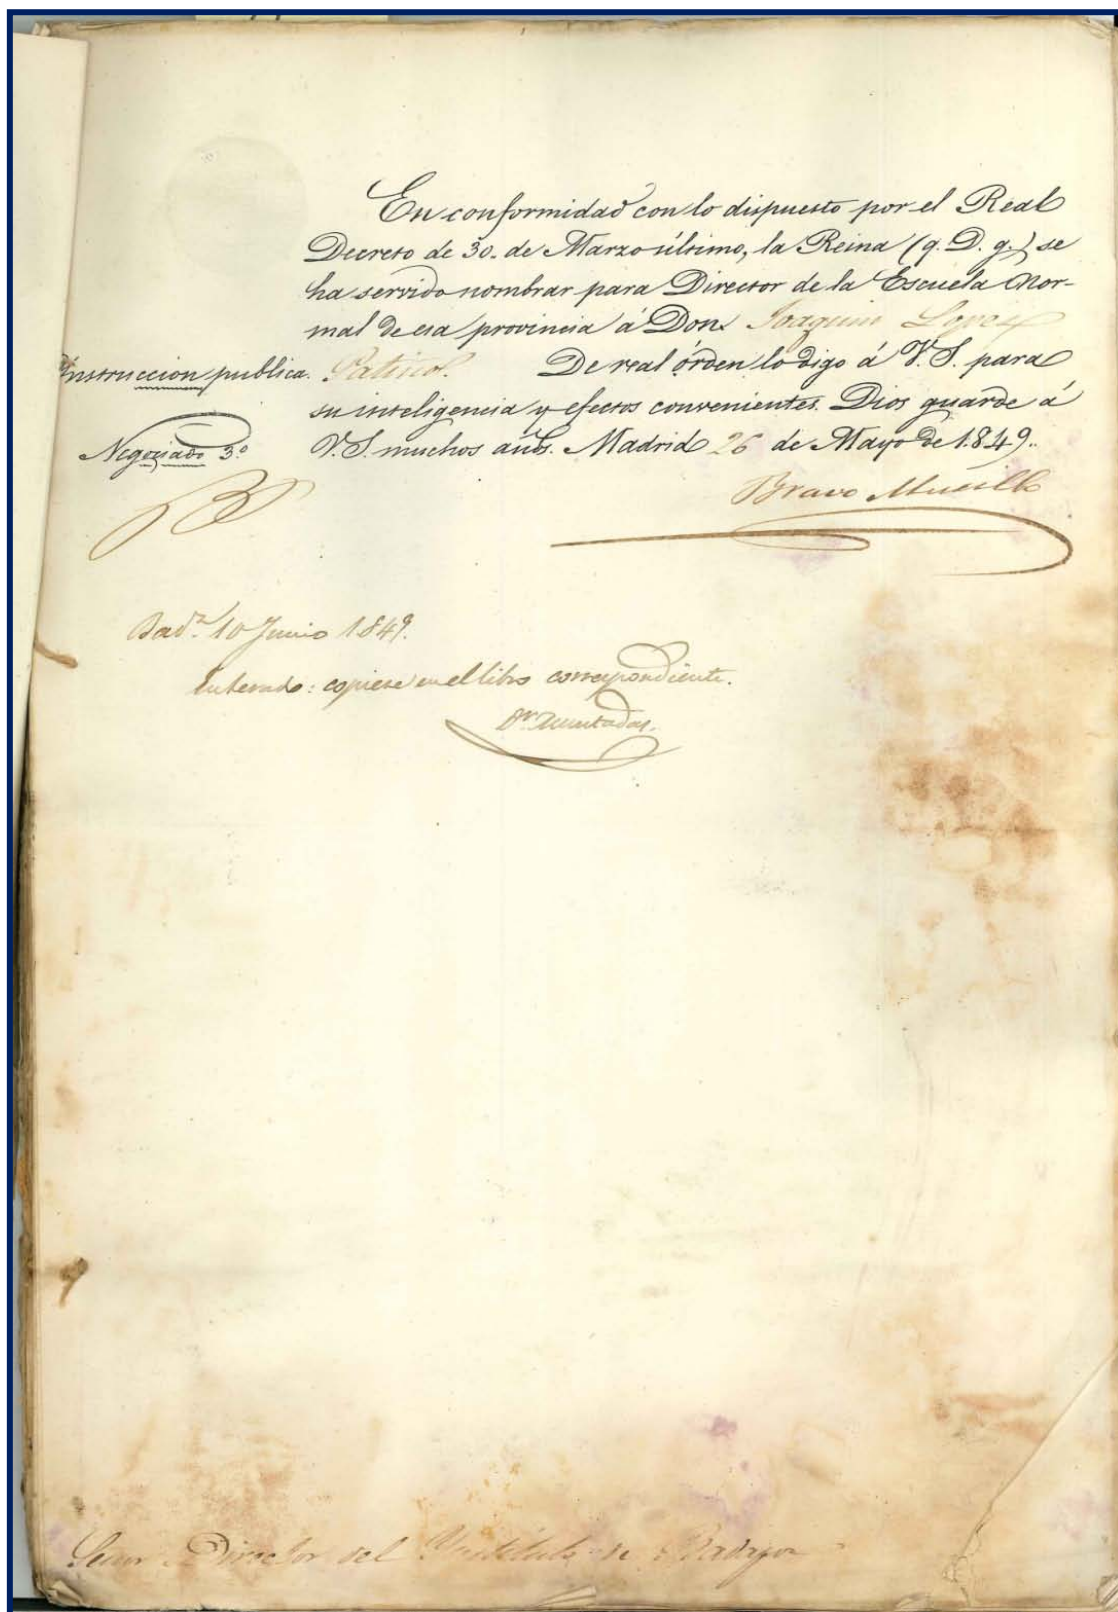 En conformidad con lo dispuesto por el Real
Decreto de 30. de Marzo último, la Reina (q. D. g.) se
ha servido nombrar para Director de la Escuela Nor-
mal de esa provincia á Don Joaquin Lopez
Instruccion publica.
De real órden lo digo á V.S. para
su inteligencia y efectos convenientes. Dios guarde á
Negociado 3º
V.S. muchos años. Madrid 26 de Mayo de 1849.
Bravo Murillo
Badz 10 Junio 1849.
Enterado: copiese en el libro correspondiente.
Señor Director del Instituto de Badajoz